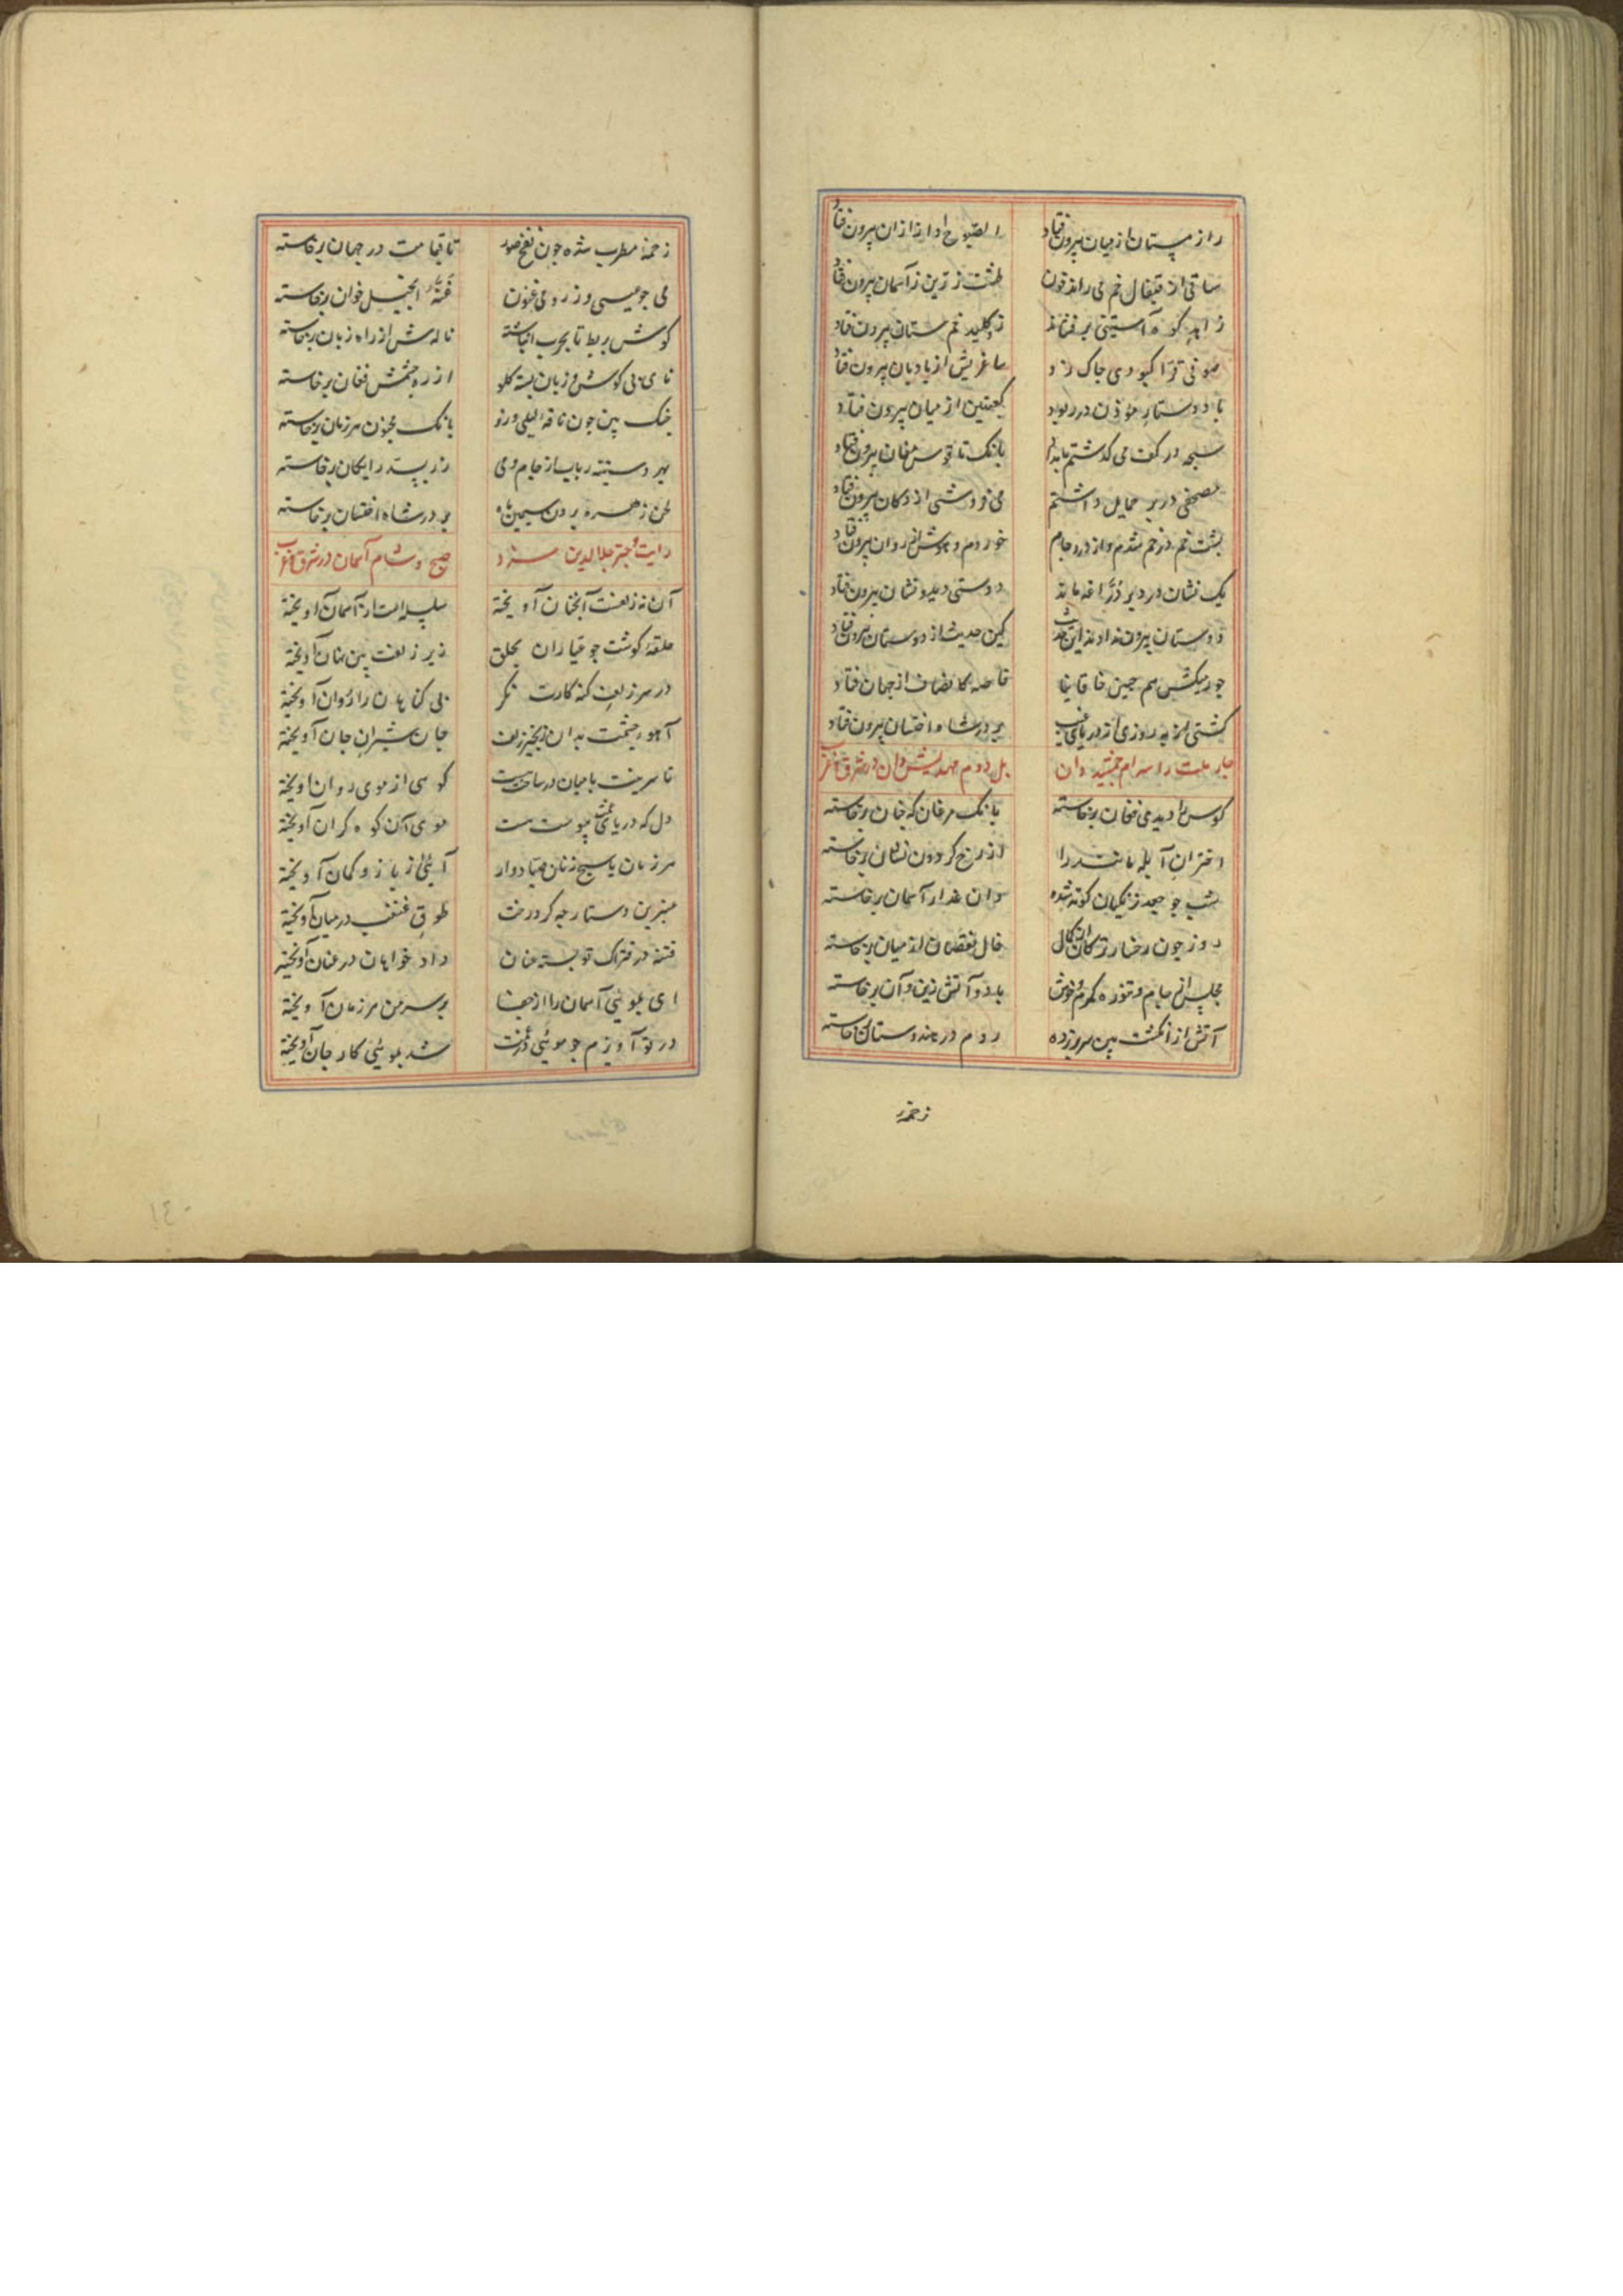 راز مستان از میان بیرون فتاد الصبوح آواز از آن بیرون فتاد
ساقی از قیفال خم می راند خون طشت زرین ز آسمان بیرون فتاد
زاهد کوه آستینی بر فشاند زو کلید خمستان بیرون فتاد
صوفی قرا کبودی چاک زد ساغریش از بادبان بیرون فتاد
باد دستار مؤذن در ربود کعبتین از میان بیرون فتاد
سبحه در کف می گذشتم بامداد بانک ناقوس مغان بیرون فتاد
مصحفی در بر حمایل داشتم می فروشی از دکان بیرون فتاد
پشت خم در خم شدم واز درد جام خوردم و هوش از روان بیرون فتاد
یک نشان در دیر دراعه ماند دوستی دید و نشان بیرون فتاد
دوستان بیرون نداد این حدیث کین حدیث از دوستان بیرون فتاد
جور میکش هم چنین خاقانیا خاصه کانصاف از جهان فتاد
کشتی بهروزی از دریای غیب بر در شاه اخستان بیرون فتاد
ملت را بهرام جمشید دان بل دوم مهدیش دان در شرق و غرب
کوس را دیدی فغان برخاسته بانک مرغان کنان برخاسته
اختران آبله مانند را از رخ گردون نشان برخاسته
شب چو جعد زنگیان کوته شده وان عذار آسمان برخاسته
روز چون رخسار ترکان از کمال خال نقصان از میان برخاسته
مجلس از جام و تنوره گرم و خوش باد و آتش زین و آن برخاسته
آتش از انگشت بین سر بر زده روم در هندوستان برخاسته
زخمه
زخمه مطرب شده چون نفخ صور تا قیامت در جهان برخاسته
می چو عیسی و ز رومی ارغنون غنه انجیل خوان برخاسته
کوش بربط تا بچوب انباشته ناله ش از راه زبان برخاسته
نای بی کوش و زبان بسته گلو از ره چشمش فغان برخاسته
چنک بین چون ناقه لیلی وزو بانک مجنون هر زمان برخاسته
بهر دستینه رباب از جام و می زر بسد رایکان برخاسته
لحن زهره بر دف سیمین ماه بر در شاه اخستان برخاسته
رایت و چتر جلال الدین سزد صبح و شام آسمان در شرق و غرب
آن نه زلفست آنچنان آویخته سلسله است از آسمان آویخته
حلقه گوشت چو عیاران بحلق زیر زلفت بین نهان آویخته
در سر زلف گنه کارت نگر بی گناهان را روان آویخته
آهوی چشمت بدان زنجیر زلف جان شیران جان آویخته
تا سرینت با میان درساختست کوسی از موی روان آویخته
دل که در پیوست هست موی آن کوه گران آویخته
هر زمان یاسیج زنان صیادوار آیی از بازو کمان آویخته
عنبرین دستارچه گرد رخت طوق غبغب در میان آویخته
فتنه در فتراک تو بسته عنان داد خواهان در عنان آویخته
ای بمویی آسمان را از جفا بر سر من هر زمان آویخته
در تو آویزم چو مویی شد بمویی کار جان آویخته